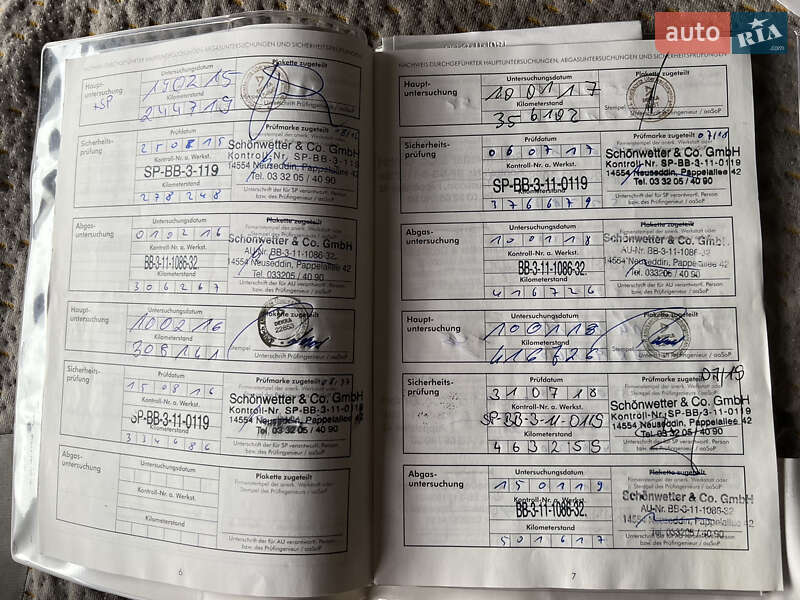 auto RIA .com
NACHWEIS DURCHGEFÜHRTER HAUPTUNTERSUCHUNGEN, ABGASUNTERSUCHUNGEN UND SICHERHEITSPRÜFUNGEN
Haupt-
untersuchung
+SP
Untersuchungsdatum
190215
Kilometerstand
244719
Plakette zugeteilt
Unterschrift Prüfingenieur / aaSoP
Sicherheits-
prüfung
Prüfdatum
250815
Kontroll-Nr. a. Werkst.
SP-BB-3-119
Kilometerstand
278248
Prüfmarke zugeteilt
Schönwetter & Co. GmbH
Kontroll-Nr. SP-BB-3-119
14554 Neuseddin, Pappelallee 42
Tel. 03 32 05 / 40 90
Unterschrift der für SP verantwortl. Person
bzw. des Prüfingenieur / aaSoP
Abgas-
untersuchung
Untersuchungsdatum
010216
Kontroll-Nr. a. Werkst.
BB-3-11-1086-32.
Kilometerstand
306267
Plakette zugeteilt
Schönwetter & Co. GmbH
AU-Nr. BB-3-11-1086-32
14554 Neuseddin, Pappelallee 42
Tel. 033205 / 40 90
Unterschrift der für AU verantwortl. Person
bzw. des Prüfingenieur / aaSoP
Haupt-
untersuchung
Untersuchungsdatum
100216
Kilometerstand
Plakette zugeteilt
DEKRA
22653
Stempel
Unterschrift Prüfingenieur / aaSoP
Sicherheits-
prüfung
Prüfdatum
150816
Kontroll-Nr. a. Werkst.
SP-BB-3-11-0119
Kilometerstand
334686
Prüfmarke zugeteilt
Firmenstempel der anerk. Werkstatt oder
Schönwetter & Co. GmbH
Kontroll-Nr. SP-BB-3-11-0119
14554 Neuseddin, Pappelallee 42
Tel. 03 32 05 / 40 90
Unterschrift der für SP verantwortl. Person
bzw. des Prüfingenieur / aaSoP
Abgas-
untersuchung
Untersuchungsdatum
Kontroll-Nr. a. Werkst.
Kilometerstand
Plakette zugeteilt
Firmenstempel der anerk. Werkstatt oder
Stempel des Prüfingenieur / aaSoP
Unterschrift der für AU verantwortl. Person
bzw. des Prüfingenieur / aaSoP
6
NACHWEIS DURCHGEFÜHRTER HAUPTUNTERSUCHUNGEN, ABGASUNTERSUCHUNGEN UND SICHERHEITSPRÜFUNGEN
Haupt-
untersuchung
Untersuchungsdatum
100117
Kilometerstand
356102
Plakette zugeteilt
DEKRA
Stempel
Unterschrift Prüfingenieur / aaSoP
Sicherheits-
prüfung
Prüfdatum
060717
Kontroll-Nr. a. Werkst.
SP-BB-3-11-0119
Kilometerstand
376679
Prüfmarke zugeteilt 07/18
Firmenstempel der anerk. Werkstatt oder
Schönwetter & Co. GmbH
Kontroll-Nr. SP-BB-3-11-0119
14554 Neuseddin, Pappelallee 42
Tel. 03 32 05 / 40 90
Unterschrift der für SP verantwortl. Person
bzw. des Prüfingenieur / aaSoP
Abgas-
untersuchung
Untersuchungsdatum
100118
Kontroll-Nr. a. Werkst.
BB-3-11-1086-32.
Kilometerstand
416726
Plakette zugeteilt
Schönwetter & Co. GmbH
AU-Nr. BB-3-11-1086-32
14554 Neuseddin, Pappelallee 42
Tel. 033205 / 40 90
Unterschrift der für AU verantwortl. Person
bzw. des Prüfingenieur / aaSoP
Haupt-
untersuchung
Untersuchungsdatum
100118
Kilometerstand
416726
Plakette zugeteilt
Stempel
Unterschrift Prüfingenieur / aaSoP
Sicherheits-
prüfung
Prüfdatum
310718
Kontroll-Nr. a. Werkst.
SP-BB-3-11-0119
Kilometerstand
463255
Prüfmarke zugeteilt
Firmenstempel der anerk. Werkstatt oder
Schönwetter & Co. GmbH
Kontroll-Nr. SP-BB-3-11-0119
14554 Neuseddin, Pappelallee 42
Tel. 03 32 05 / 40 90
Unterschrift der für SP verantwortl. Person
bzw. des Prüfingenieur / aaSoP
Abgas-
untersuchung
Untersuchungsdatum
150119
Kontroll-Nr. a. Werkst.
BB-3-11-1086-32.
Kilometerstand
501617
Plakette zugeteilt
Firmenstempel der anerk. Werkstatt oder
Stempel des Prüfingenieur / aaSoP
Schönwetter & Co. GmbH
AU-Nr. BB-3-11-1086-32
14554 Neuseddin, Pappelallee 42
Tel. 033205 / 40 90
Unterschrift der für AU verantwortl. Person
bzw. des Prüfingenieur / aaSoP
7